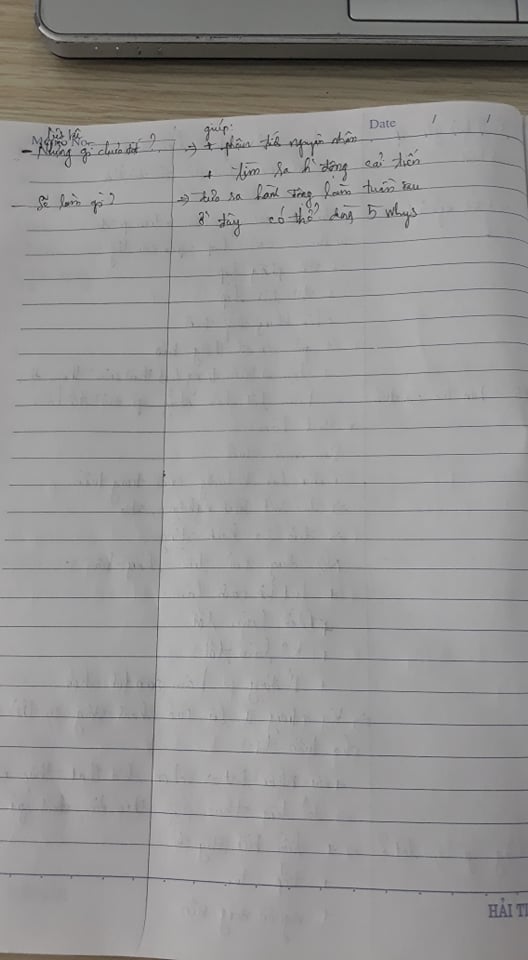 giúp:
Date / /
Memo No.
- Những gì chưa đạt? => + phân tích nguyên nhân
+ tìm ra h động cải tiến
- Sẽ làm gì? => đưa ra hành động làm tuần sau
ở đây có thể dùng 5 whys
HẢI T